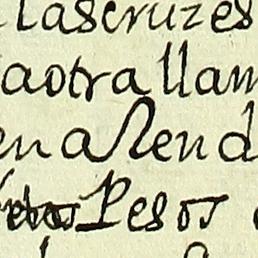 llascruzes
aotrallam
ena Rend
Pesos